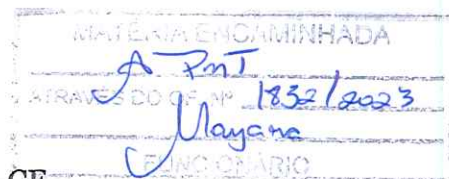 MATÉRIA ENCAMINHADA
A PMT
ATRAVÉS DO OF. Nº 1832/2023
Mayana
FUNCIONÁRIO
CE